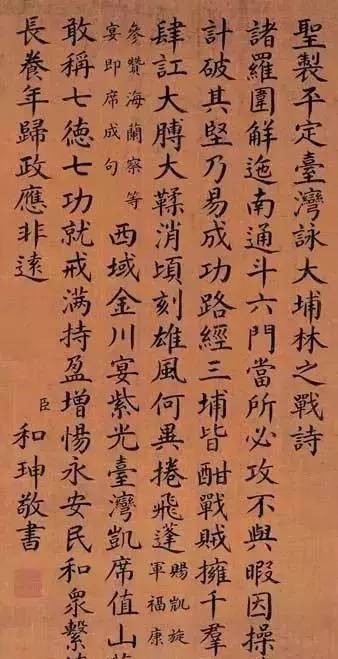 聖製平定臺灣詠大埔林之戰詩
諸羅圍解迤南通斗六門當所必攻不與暇因操
計破其堅乃易成功路經三埔皆酣戰賊擁千羣
肆訌大膊大鞣消頃刻雄風何異捲飛蓬賜凱旋軍福康
參贊海蘭察等
宴即席成句
西域金川宴紫光臺灣凱席值山
敢稱七德七功就戒滿持盈增惕永安民和衆繫
長養年歸政應非遠
臣和珅敬書